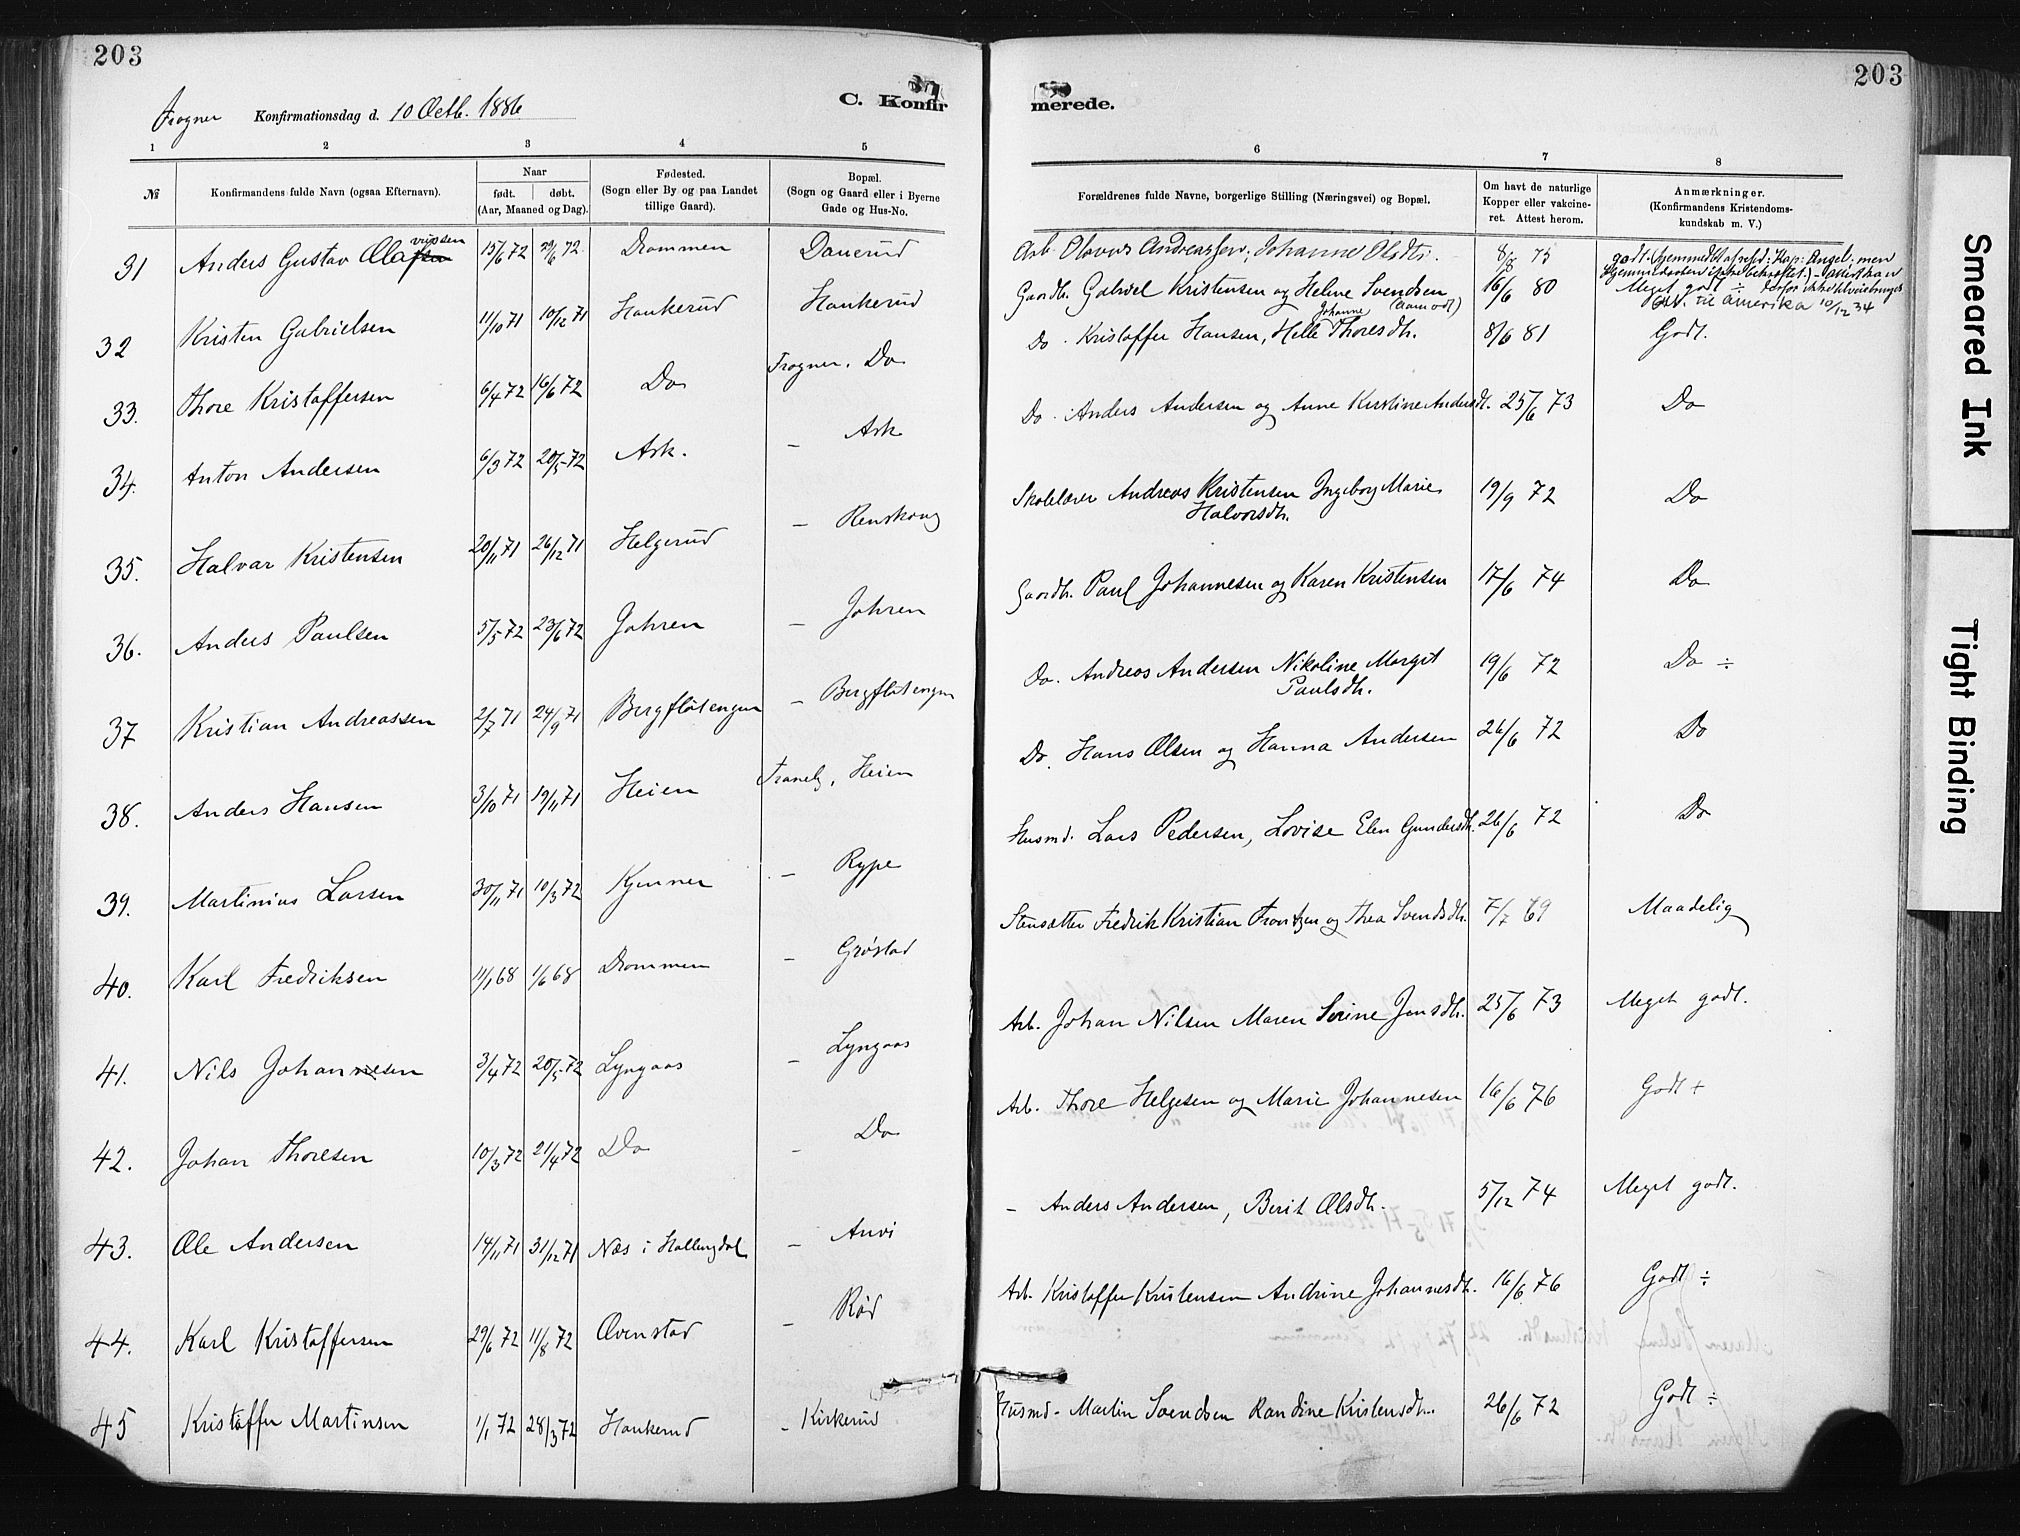 203
203
Frogner Konfirmationsdag d. 10 Octb. 1886
C. Konfir
merede.
1 2 3 4 5
6 7 8
№
Konfirmandens fulde Navn (ogsaa Efternavn).
Naar
født. døbt.
(Aar, Maaned og Dag).
Fødested.
(Sogn eller By og paa Landet
tillige Gaard).
Bopæl.
(Sogn og Gaard eller i Byerne
Gade og Hus-No.
Forældrenes fulde Navne, borgerlige Stilling (Næringsvei) og Bopæl.
Om havt de naturlige
Kopper eller vakcine-
ret. Attest herom.
Anmærkninger.
(Konfirmandens Kristendoms-
kundskab m. V.)
31 Anders Gustav Olafsen 15/6 72 29/6 72. Drammen Dauerud
Arb. Olavus Andreassen, Johanne Olsdtr. 8/8 75 godt.
32 Kristen Gabrielsen 11/10 71 10/12 71 Haukerud Haukerud
Gaardb. Gabriel Kristensen og Helene Svendsen 16/6 80 Meget godt ÷
til Amerika 10/12 34
33. Thore Kristoffersen 6/4 72 16/6 72 Do Frogner. Do
Do. Kristoffer Hansen, Helle Johanne Thoresdt. 8/6 81 Godt.
34. Anton Andersen 6/3 72 20/5 72 Ask. – Ask
Do. Anders Andersen og Anne Kirstine Andersdt. 25/6 73 Do
35. Halvar Kristensen 20/11 71 26/12 71 Helgerud – Renskoug
Skolelærer Andreas Kristensen Ingeborg Marie
Halvorsdt. 19/9 72 Do
36. Anders Paulsen 5/5 72 23/6 72 Jahren – Jahren
Gaardb. Paul Johannesen og Karen Kristensen 17/6 74 Do
37 Kristian Andreassen 2/7 71 24/9 71 Bergflötengen – Bergflötengen
Do. Andreas Andersen Nikoline Margit
Paulsdt. 19/6 72 Do ÷
38. Anders Hansen 3/10 71 19/11 71 Heien Tranby, Heien
Do. Hans Olsen og Hanna Andersen 26/6 72 Do
39. Martinius Larsen 30/11 71 10/3 72 Kjenner – Rype
Husmd. Lars Pedersen, Lovise Elen Gundersdt. 26/6 72 Do
40. Karl Fredriksen 11/1 68 1/6 68 Drammen – Grøstad
Stensætter Fredrik Kristian Frantzen og Thea Svendsdt. 7/7 69 Maadelig
41. Nils Johannesen 3/4 72 20/5 72 Lyngaas – Lyngaas
Arb. Johan Nilsen Maren Sirine Jensdt. 25/6 73 Meget godt.
42. Johan Thoresen 10/3 72 21/4 72 Do – Do
Arb. Thore Helgesen og Marie Johannesen 16/6 76 Godt +
43. Ole Andersen 14/11 71 31/12 71 Næs i Hallingdal – Anvi
– Anders Andersen, Berit Olsdt. 5/12 74 Meget godt.
44. Karl Kristoffersen 29/6 72 11/8 72 Ovenstad – Rød
Arb. Kristoffer Kristensen Andrine Johannesdt. 16/6 76 Godt ÷
45 Kristoffer Martinsen 1/1 72 28/3 72 Haukerud – Kirkerud
Husmd. Martin Svendsen Randine Kristensdt. 26/6 72 Godt ÷
Smeared Ink
Tight Binding